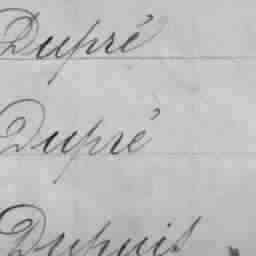 Dupré
Dupré
Dupuis